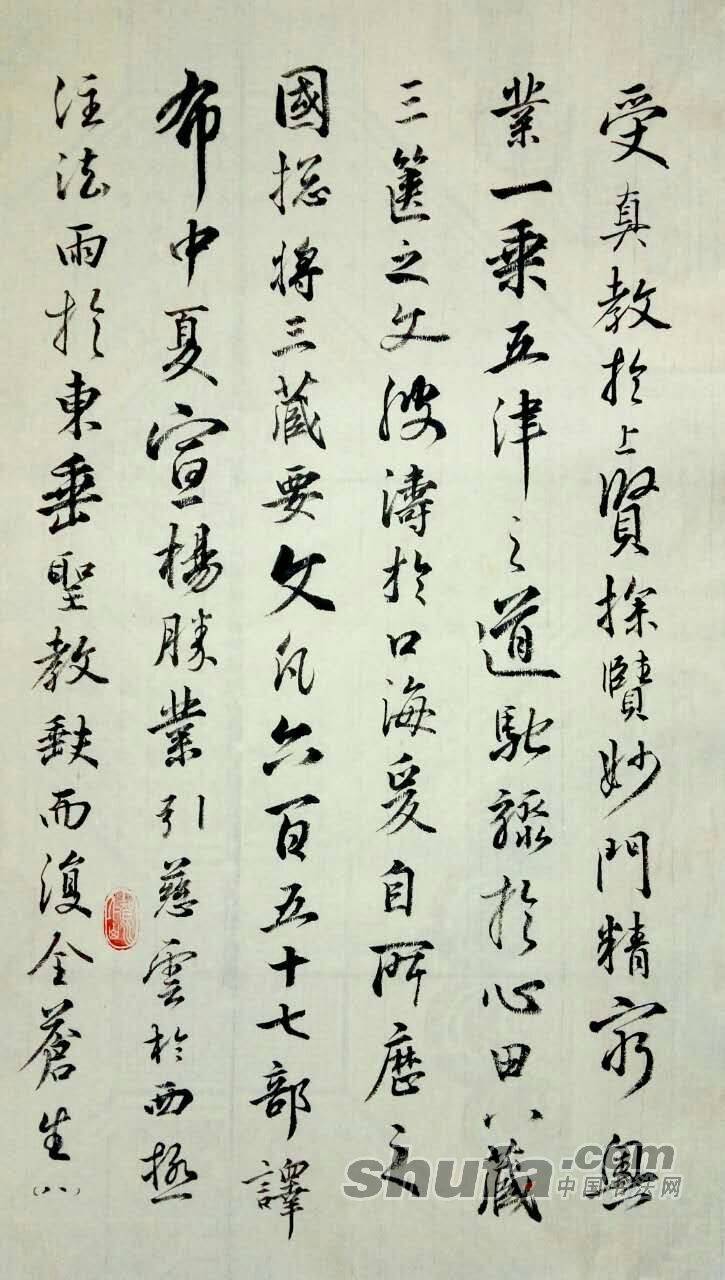 受真教於上賢探賾妙門精窮奧
業一乘五津之道馳驟於心田八藏
三篋之文波濤於口海爰自所歷之
國捴將三藏要文凡六百五十七部譯
布中夏宣楊勝業引慈雲於西極
注法雨於東垂聖教缺而復全蒼生
（八）
shufa.com
中国书法网